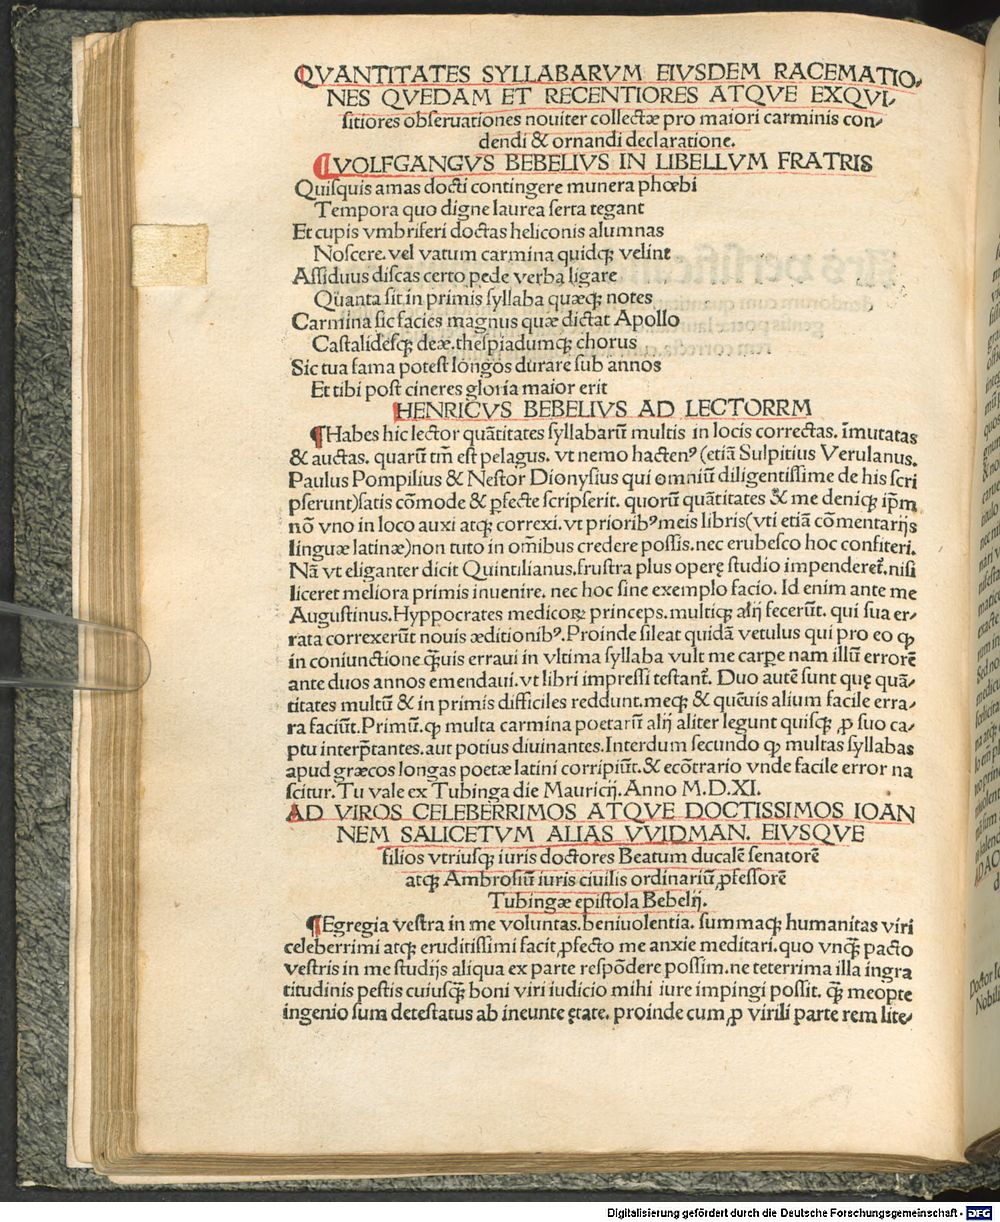 QVANTITATES SYLLABARVM EIVSDEM RACEMATIO⸗
NES QVEDAM ET RECENTIORES ATQVE EXQVI⸗
ſitiores obſeruationes nouiter collectæ pro maiori carminis con⸗
dendi & ornandi declaratione.
VOLFGANGVS BEBELIVS IN LIBELLVM FRATRIS
Quiſquis amas docti contingere munera phœbi
Tempora quo digne laurea ſerta tegant
Et cupis vmbriferi doctas heliconis alumnas
Noſcere. vel vatum carmina quidqꝫ velint
Aſſiduus diſcas certo pede verba ligare
Quanta ſit in primis ſyllaba quæqꝫ notes
Carmina ſic facies magnus quæ dictat Apollo
Caſtalideſqꝫ deæ. theſpiadumqꝫ chorus
Sic tua fama poteſt longos durare ſub annos
Et tibi poſt cineres gloria maior erit
HENRICVS BEBELIVS AD LECTORRM
¶Habes hic lector quãtitates ſyllabarũ multis in locis correctas. ĩmutatas
& auctas. quarũ tm̃ eſt pelagus. vt nemo hactenꝰ (etiã Sulpitius Verulanus.
Paulus Pompilius & Neſtor Dionyſius qui omniũ diligentiſſime de his ſcri
pſerunt)ſatis cõmode & ꝑfecte ſcripſerit. quorũ quãtitates & me deniqꝫ ip̃m
nõ vno in loco auxi atqꝫ correxi. vt prioribꝰ meis libris(vti etiã cõmentarijs
linguæ latinæ)non tuto in om̃ibus credere poſſis. nec erubeſco hoc confiteri.
Nã vt eliganter dicit Quintilianus. fruſtra plus operę ſtudio impenderet̃. niſi
liceret meliora primis inuenire. nec hoc ſine exemplo facio. Id enim ante me
Auguſtinus. Hyppocrates medicoꝝ princeps. multiqꝫ alij fecerũt. qui ſua er⸗
rata correxerũt nouis æditionibꝰ. Proinde ſileat quidã vetulus qui pro eo ꝙ
in coniunctione q̃uis erraui in vltima ſyllaba vult me carpe nam illũ errorẽ
ante duos annos emendaui. vt libri impreſſi teſtant̃. Duo autẽ ſunt quę quã⸗
titates multũ & in primis difficiles reddunt. meqꝫ & quẽuis alium facile erra⸗
ra faciũt. Primũ. ꝙ multa carmina poetarũ alij aliter legunt quiſqꝫ ꝓ ſuo ca⸗
ptu interp̃tantes. aut potius diuinantes. Interdum ſecundo ꝙ multas ſyllabas
apud græcos longas poetæ latini corripiũt. & ecõtrario vnde facile error na
ſcitur. Tu vale ex Tubinga die Mauricij. Anno M.D.XI.
AD VIROS CELEBERRIMOS ATQVE DOCTISSIMOS IOAN
NEM SALICETVM ALIAS VVIDMAN. EIVSQVE
filios vtriuſqꝫ iuris doctores Beatum ducalẽ ſenatorẽ
atqꝫ Ambroſiũ iuris ciuilis ordinariũ ꝓfeſſorẽ
Tubingæ epiſtola Bebelij.
¶Egregia veſtra in me voluntas. beniuolentia. ſummaqꝫ humanitas viri
celeberrimi atqꝫ eruditiſſimi facit ꝓfecto me anxie meditari. quo vnqꝫ̃ pacto
veſtris in me ſtudijs aliqua ex parte reſpõdere poſſim. ne teterrima illa ingra
titudinis peſtis cuiuſqꝫ̃ boni viri iudicio mihi iure impingi poſſit. qꝫ̃ meopte
ingenio ſum deteſtatus ab ineunte ętate. proinde cum ꝓ virili parte rem lite⸗
Digitalisierung gefördert durch die Deutsche Forschungsgemeinschaft - DFG